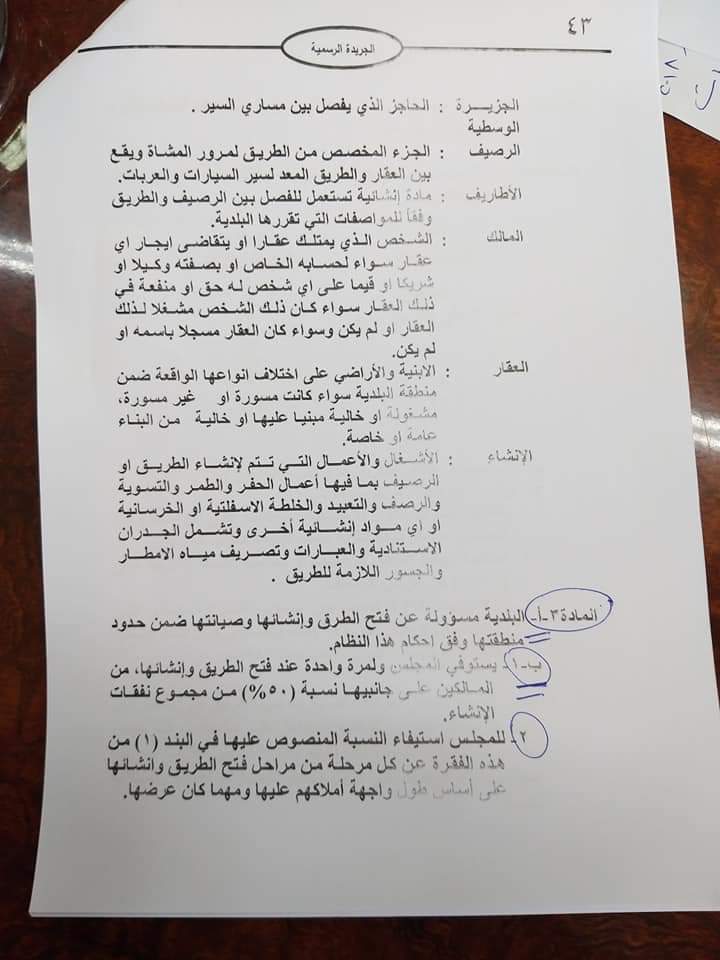 ٤٣
الجريدة الرسمية
الجزيـــرة : الحاجز الذي يفصل بين مساري السير .
الوسطية
الرصيف : الجزء المخصص من الطريق لمرور المشاة ويقع
بين العقار والطريق المعد لسير السيارات والعربات.
الأطاريف : مادة إنشائية تستعمل للفصل بين الرصيف والطريق
وفقاً للمواصفات التي تقررها البلدية.
المالك : الشخص الذي يمتلك عقارا او يتقاضى ايجار اي
عقار سواء لحسابه الخاص او بصفته وكيلا او
شريكا او قيما على اي شخص له حق او منفعة في
ذلك العقار سواء كان ذلك الشخص مشغلا لذلك
العقار او لم يكن وسواء كان العقار مسجلا باسمه او
لم يكن.
العقار : الابنية والأراضي على اختلاف انواعها الواقعة ضمن
منطقة البلدية سواء كانت مسورة او غير مسورة،
مشغولة او خالية مبنيا عليها او خالية من البناء
عامة او خاصة.
الإنشاء : الأشغال والأعمال التي تتم لإنشاء الطريق او
الرصيف بما فيها أعمال الحفر والطمر والتسوية
والرصف والتعبيد والخلطة الاسفلتية او الخرسانية
او اي مواد إنشائية أخرى وتشمل الجدران
الاستنادية والعبارات وتصريف مياه الامطار
والجسور اللازمة للطريق .
المادة ٣-أ- البلدية مسؤولة عن فتح الطرق وإنشائها وصيانتها ضمن حدود
منطقتها وفق احكام هذا النظام.
ب-١- يستوفي المجلس ولمرة واحدة عند فتح الطريق وإنشائها، من
المالكين على جانبيها نسبة (٥٠%) من مجموع نفقات
الإنشاء.
٢- للمجلس استيفاء النسبة المنصوص عليها في البند (١) من
هذه الفقرة عن كل مرحلة من مراحل فتح الطريق وانشائها
على أساس طول واجهة أملاكهم عليها ومهما كان عرضها.